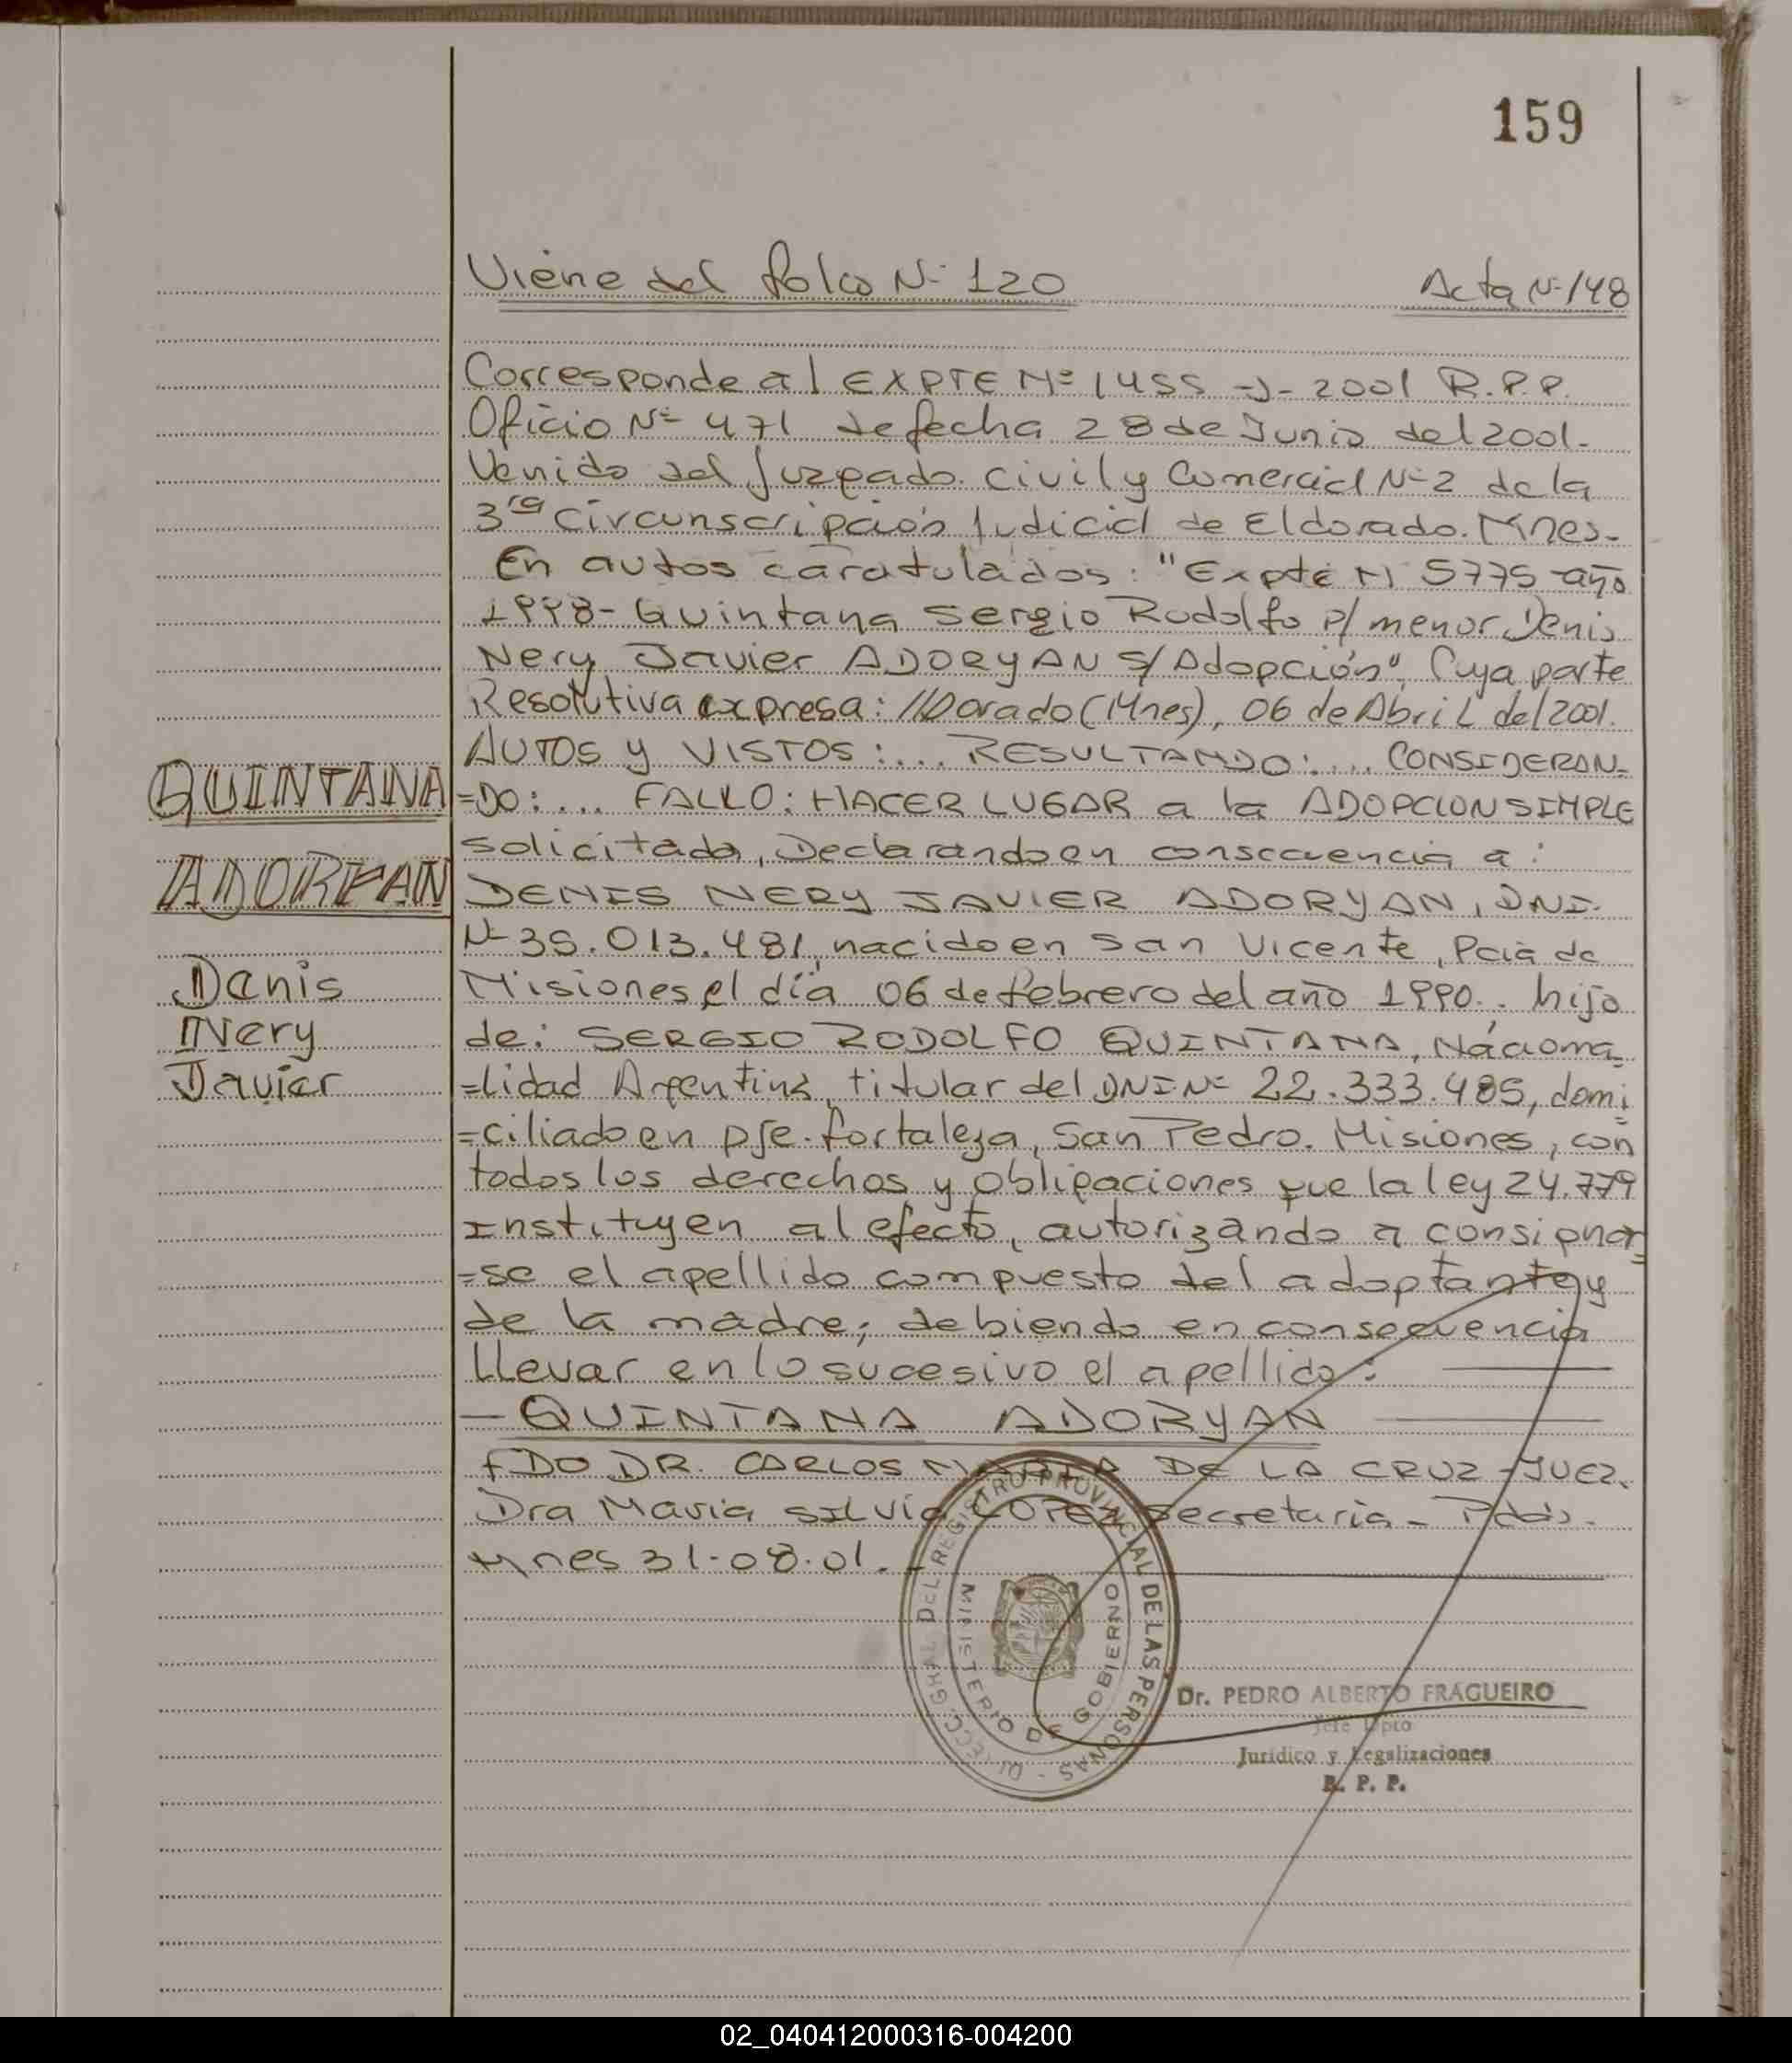 159
Viene del folio Nº 120 Acta Nº 148
Corresponde al EXPTE Nº 1455 -J- 2001 R.P.P.
Oficio Nº 471 de fecha 28 de Junio del 2001.
Venido del Juzgado Civil y Comercial Nº 2 de la
3ra Circunscripción Judicial de Eldorado. Mnes-
En autos caratulados: "Expte N 5775 año
1998- Quintana Sergio Rodolfo p/ menor Denis
Nery Javier ADORYAN S/Adopción", Cuya parte
Resolutiva expresa: //Dorado (Mnes), 06 de Abril del 2001.
AUTOS y VISTOS:... RESULTANDO:.... CONSIDERAN-
=DO:... FALLO: HACER LUGAR a la ADOPCION SIMPLE
solicitada, Declarando en consecuencia a:
DENIS NERY JAVIER ADORYAN, DNI.
Nº 35.013.481, nacido en San Vicente, Pcia de
Misiones, el día 06 de febrero del año 1990.. hijo
de: SERGIO RODOLFO QUINTANA, Naciona
=lidad Argentina, titular del DNI Nº 22.333.485, domi
=ciliado en Pje. fortaleza, San Pedro. Misiones, con
todos los derechos y obligaciones que la ley 24.779
Instituyen al efecto, autorizando a consignar
=se el apellido compuesto del adoptante y
de la madre; debiendo en consecuencia
llevar en lo sucesivo el apellido:
- QUINTANA ADORYAN
FDO DR. CARLOS MARIA DE LA CRUZ - JUEZ.
Dra Maria SILVIA LOPEZ Secretaria - Pdas.
Mnes 31-08-01.-
QUINTANA
ADORYAN
Denis
Nery
Javier
DIRECC. GRAL DEL REGISTRO PROVINCIAL DE LAS PERSONAS -
MINISTERIO DE GOBIERNO
Dr. PEDRO ALBERTO FRAGUEIRO
Jefe Dpto
Jurídico y Legalizaciones
R. P. P.
02_040412000316-004200